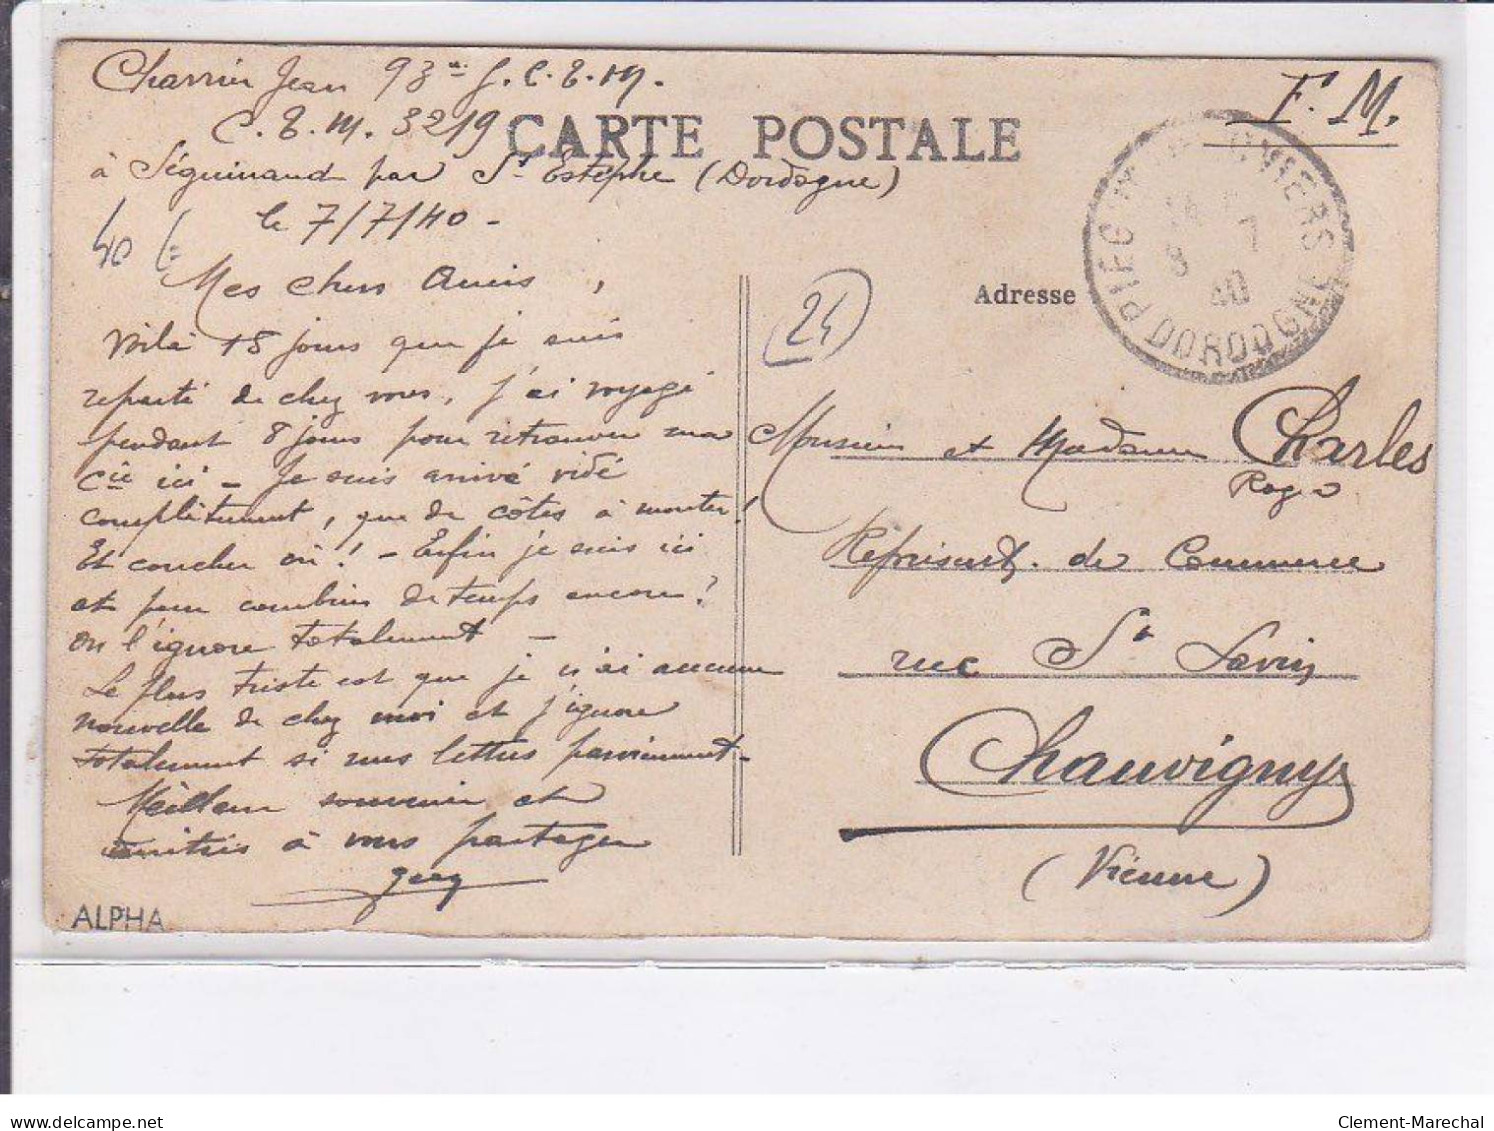 Charrier Jean 93e G.C.T.M.
C.T.M. 3219
CARTE POSTALE
F.M.
à Séguinaud par St Estèphe (Dordogne)
le 7/7/40 -
40 F=
PIEGUT-PLUVIERS
8 7
40
DORDOGNE
Mes chers Amis,
Voilà 15 jours que je suis
reparti de chez vous, j'ai voyagé
pendant 8 jours pour retrouver ma
Cie ici - Je suis arrivé vidé
complètement, que de côtes à monter!
Et coucher où! - Enfin je suis ici
et pour combien de temps encore?
on l'ignore totalement -
Le plus triste est que je n'ai aucune
nouvelle de chez moi et j'ignore
totalement si nos lettres parviennent -
Meilleur souvenir et
amitiés à vous partager
Jean
ALPHA
24
Adresse
Monsieur et Madame Charles
Roger
Représent. de Commerce
rue St Savin
Chauvigny
(Vienne)
delcampe.net
Clement-Marechal